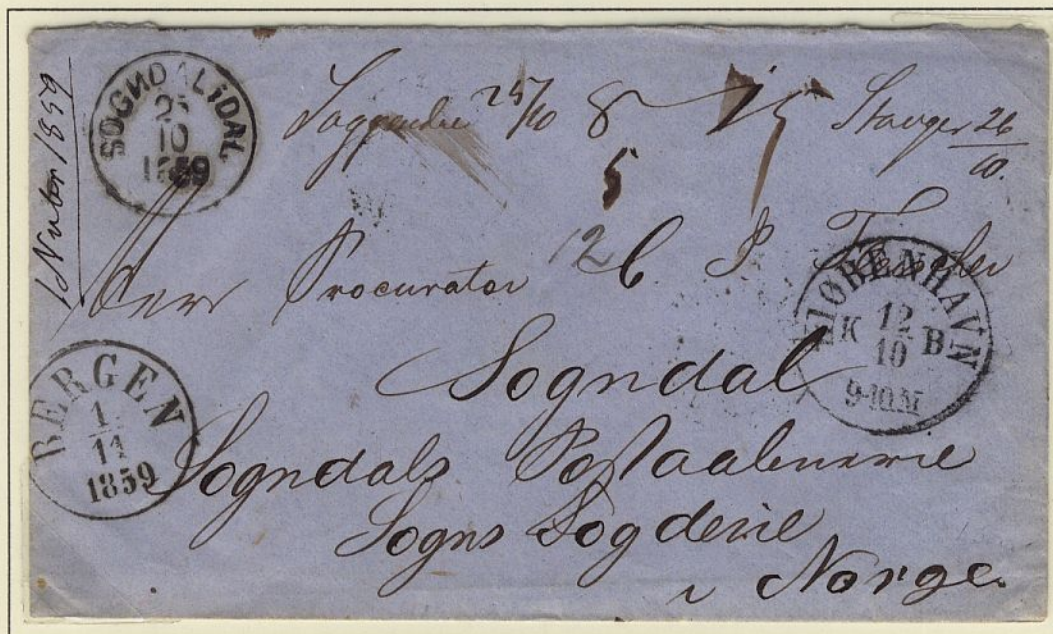 SOGNDAL i DAL
10
1859
25/10 8 Stavger 26/10.
5
12
Herr Procurator C P
KIØBENHAVN
K 12/10 B
9-10 M
Sogndal
BERGEN
1/11
1859
Sogndals Postaabnerie
Sogns Fogderie
i Norge.